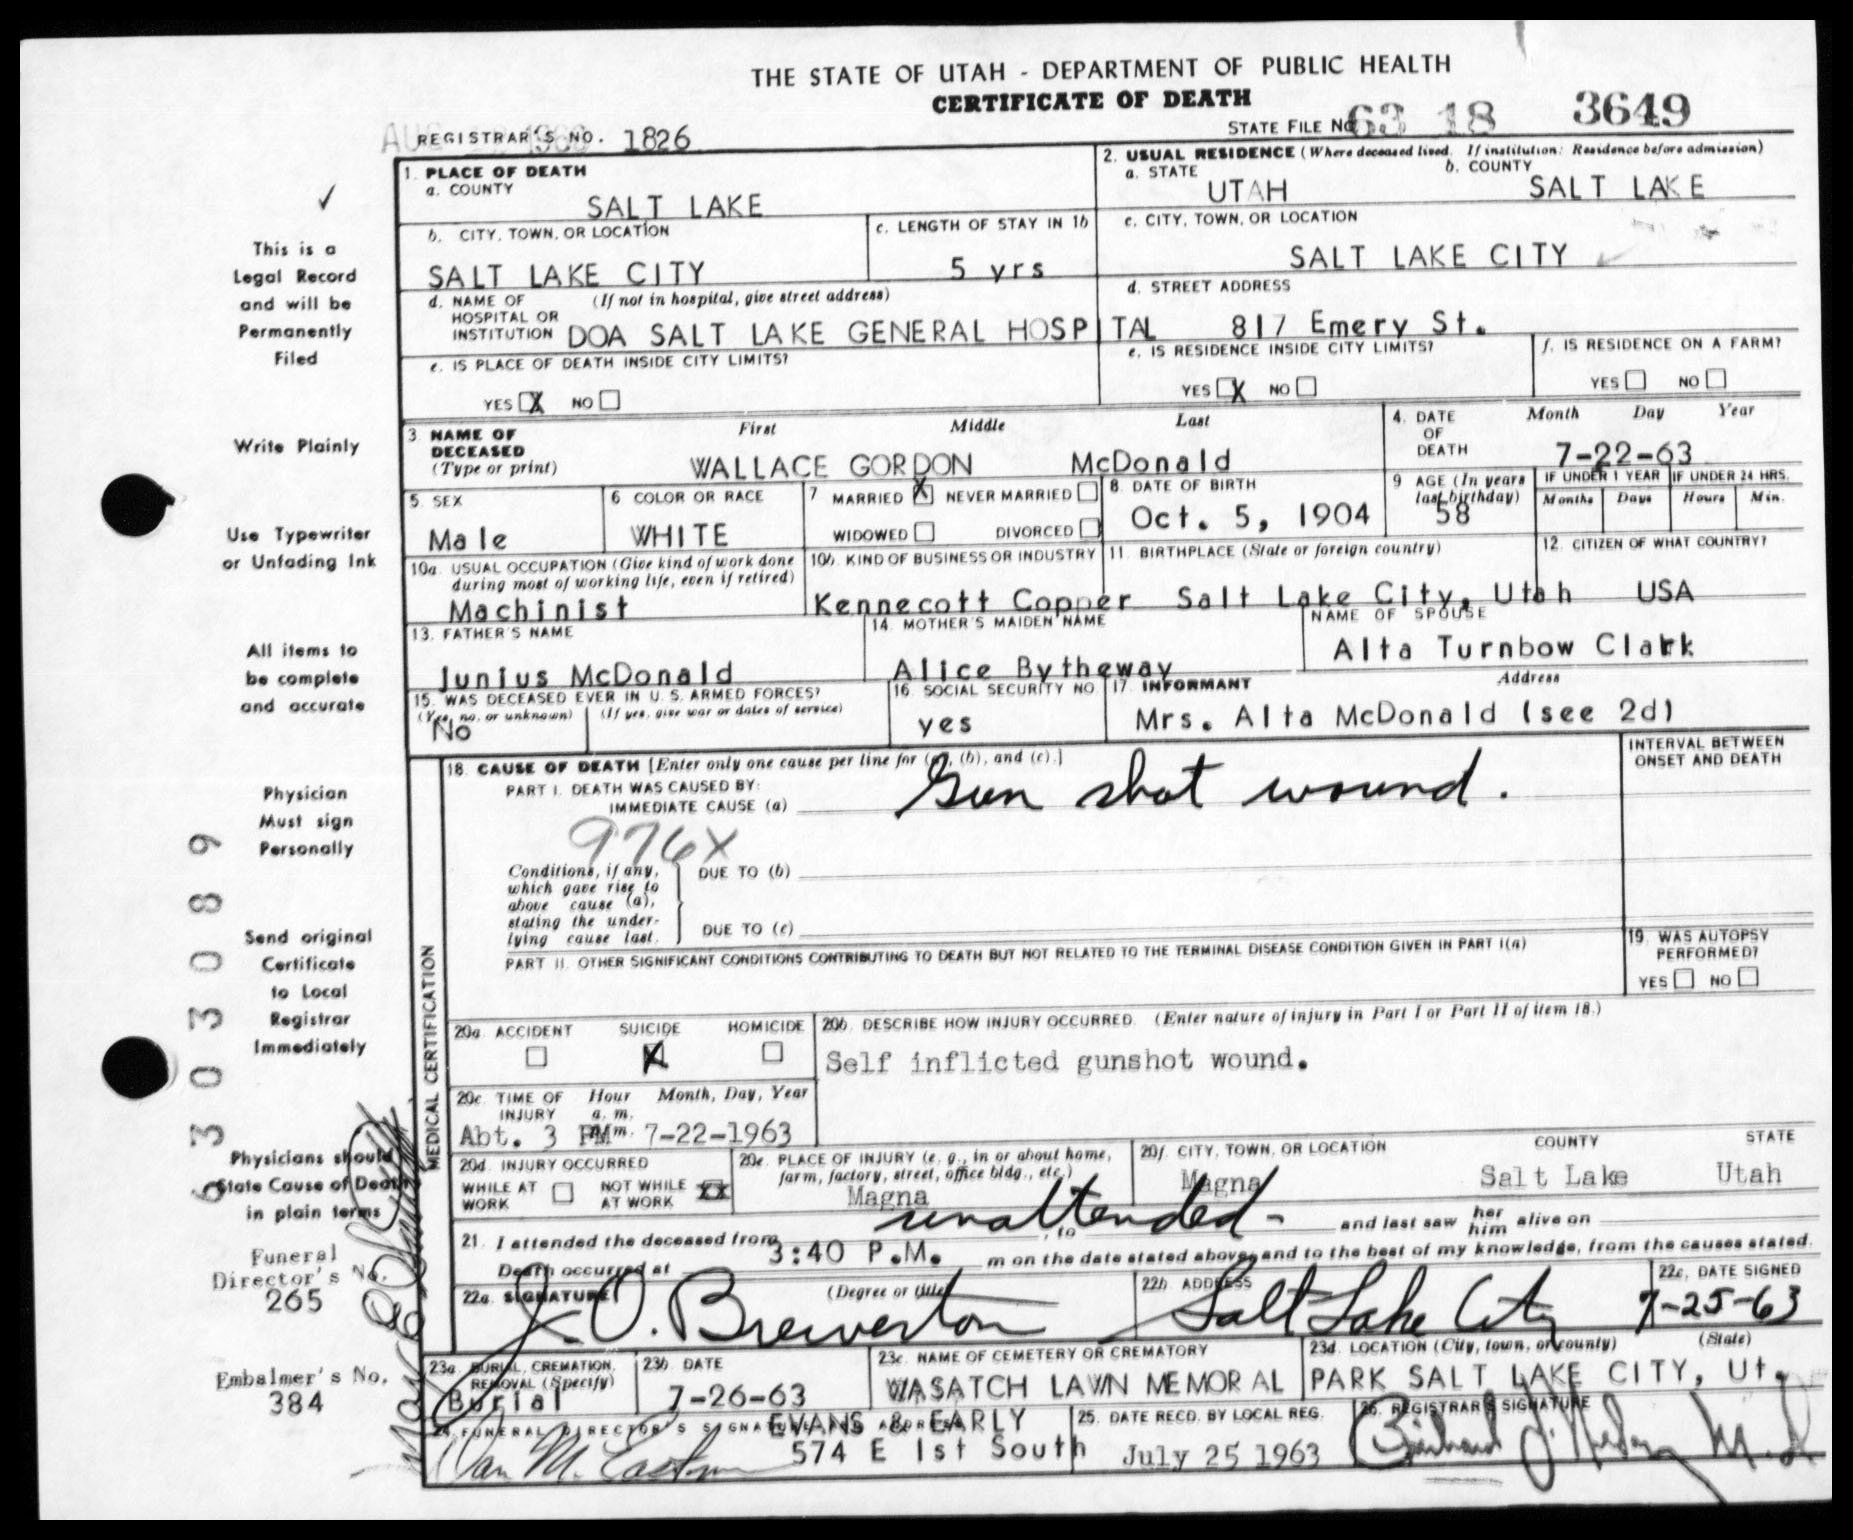 THE STATE OF UTAH - DEPARTMENT OF PUBLIC HEALTH
CERTIFICATE OF DEATH
REGISTRAR'S NO. 1826
STATE FILE NO. 63 18 3649
1. PLACE OF DEATH
a. COUNTY
SALT LAKE
2. USUAL RESIDENCE (Where deceased lived. If institution: Residence before admission)
a. STATE UTAH
b. COUNTY SALT LAKE
b. CITY, TOWN, OR LOCATION
SALT LAKE CITY
c. LENGTH OF STAY IN 1b
5 yrs
c. CITY, TOWN, OR LOCATION
SALT LAKE CITY
d. NAME OF HOSPITAL OR INSTITUTION (If not in hospital, give street address)
DOA SALT LAKE GENERAL HOSPITAL
d. STREET ADDRESS
817 Emery St.
e. IS PLACE OF DEATH INSIDE CITY LIMITS?
YES X NO
e. IS RESIDENCE INSIDE CITY LIMITS?
YES X NO
f. IS RESIDENCE ON A FARM?
YES NO
3. NAME OF DECEASED (Type or print)
First Middle Last
WALLACE GORDON McDonald
4. DATE OF DEATH
Month Day Year
7-22-63
5. SEX
Male
6 COLOR OR RACE
WHITE
7 MARRIED X NEVER MARRIED
WIDOWED DIVORCED
8. DATE OF BIRTH
Oct. 5, 1904
9 AGE (In years last birthday)
58
IF UNDER 1 YEAR
Months Days
IF UNDER 24 HRS.
Hours Min.
10a. USUAL OCCUPATION (Give kind of work done during most of working life, even if retired)
Machinist
10b. KIND OF BUSINESS OR INDUSTRY
Kennecott Copper
11. BIRTHPLACE (State or foreign country)
Salt Lake City, Utah
12. CITIZEN OF WHAT COUNTRY?
USA
13. FATHER'S NAME
Junius McDonald
14. MOTHER'S MAIDEN NAME
Alice Bytheway
NAME OF SPOUSE
Alta Turnbow Clark
15. WAS DECEASED EVER IN U. S. ARMED FORCES?
(Yes, no, or unknown) (If yes, give war or dates of service)
No
16. SOCIAL SECURITY NO.
yes
17. INFORMANT Address
Mrs. Alta McDonald (see 2d)
MEDICAL CERTIFICATION
18. CAUSE OF DEATH [Enter only one cause per line for (a), (b), and (c).]
PART I. DEATH WAS CAUSED BY:
IMMEDIATE CAUSE (a) Gun shot wound.
976X
INTERVAL BETWEEN ONSET AND DEATH
Conditions, if any, which gave rise to above cause (a), stating the underlying cause last.
DUE TO (b)
DUE TO (c)
PART II. OTHER SIGNIFICANT CONDITIONS CONTRIBUTING TO DEATH BUT NOT RELATED TO THE TERMINAL DISEASE CONDITION GIVEN IN PART I(a)
19. WAS AUTOPSY PERFORMED?
YES NO
20a. ACCIDENT SUICIDE HOMICIDE
X
20b. DESCRIBE HOW INJURY OCCURRED. (Enter nature of injury in Part I or Part II of item 18.)
Self inflicted gunshot wound.
20c. TIME OF INJURY Hour Month, Day, Year
a. m.
Abt. 3 PM 7-22-1963
20d. INJURY OCCURRED
WHILE AT WORK NOT WHILE AT WORK XX
20e. PLACE OF INJURY (e. g., in or about home, farm, factory, street, office bldg., etc.)
Magna
20f. CITY, TOWN, OR LOCATION COUNTY STATE
Magna Salt Lake Utah
21. I attended the deceased from unattended - , to and last saw her him alive on
Death occurred at 3:40 P.M. m on the date stated above, and to the best of my knowledge, from the causes stated.
22a. SIGNATURE (Degree or title)
J. O. Brewerton
22b. ADDRESS
Salt Lake City
22c. DATE SIGNED
7-25-63
23a. BURIAL, CREMATION, REMOVAL (Specify)
Burial
23b. DATE
7-26-63
23c. NAME OF CEMETERY OR CREMATORY
WASATCH LAWN MEMORAL
23d. LOCATION (City, town, or county) (State)
PARK SALT LAKE CITY, Ut.
24. FUNERAL DIRECTOR'S SIGNATURE & ADDRESS
EVANS & EARLY
574 E 1st South
25. DATE RECD. BY LOCAL REG.
July 25 1963
26. REGISTRAR'S SIGNATURE
M.D.
This is a
Legal Record
and will be
Permanently
Filed
Write Plainly
Use Typewriter
or Unfading Ink
All items to
be complete
and accurate
Physician
Must sign
Personally
Send original
Certificate
to Local
Registrar
Immediately
Physicians should
State Cause of Death
in plain terms
Funeral
Director's No.
265
Embalmer's No.
384
6303089